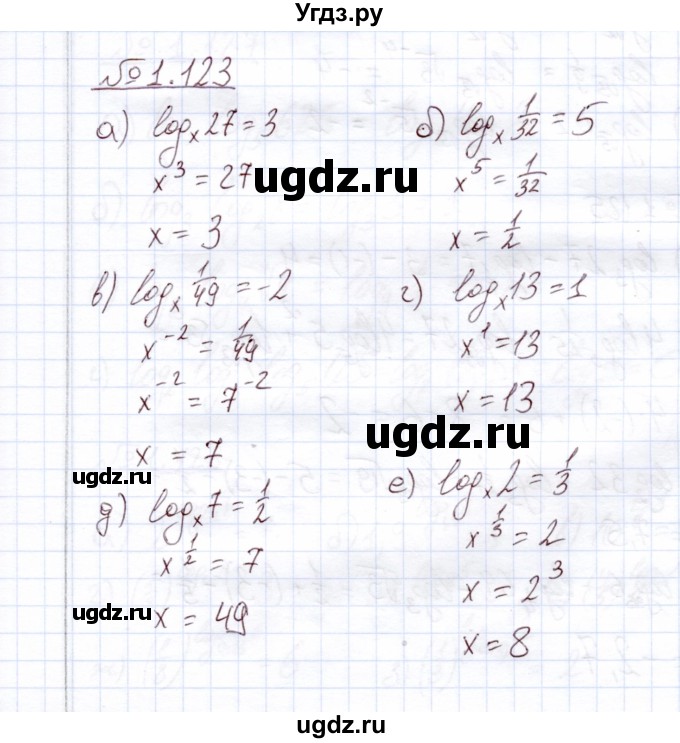 Угдз.ру
№1.123
а) log_x 27 = 3
x^3 = 27
x = 3
б) log_x 1/32 = 5
x^5 = 1/32
x = 1/2
ugdz.ru
в) log_x 1/49 = -2
x^-2 = 1/49
x^-2 = 7^-2
x = 7
г) log_x 13 = 1
x^1 = 13
x = 13
ugdz.ru
ugdz.ru
д) log_x 7 = 1/2
x^1/2 = 7
x = 49
ugdz.ru
е) log_x 2 = 1/3
x^1/3 = 2
x = 2^3
x = 8
ugdz.ru